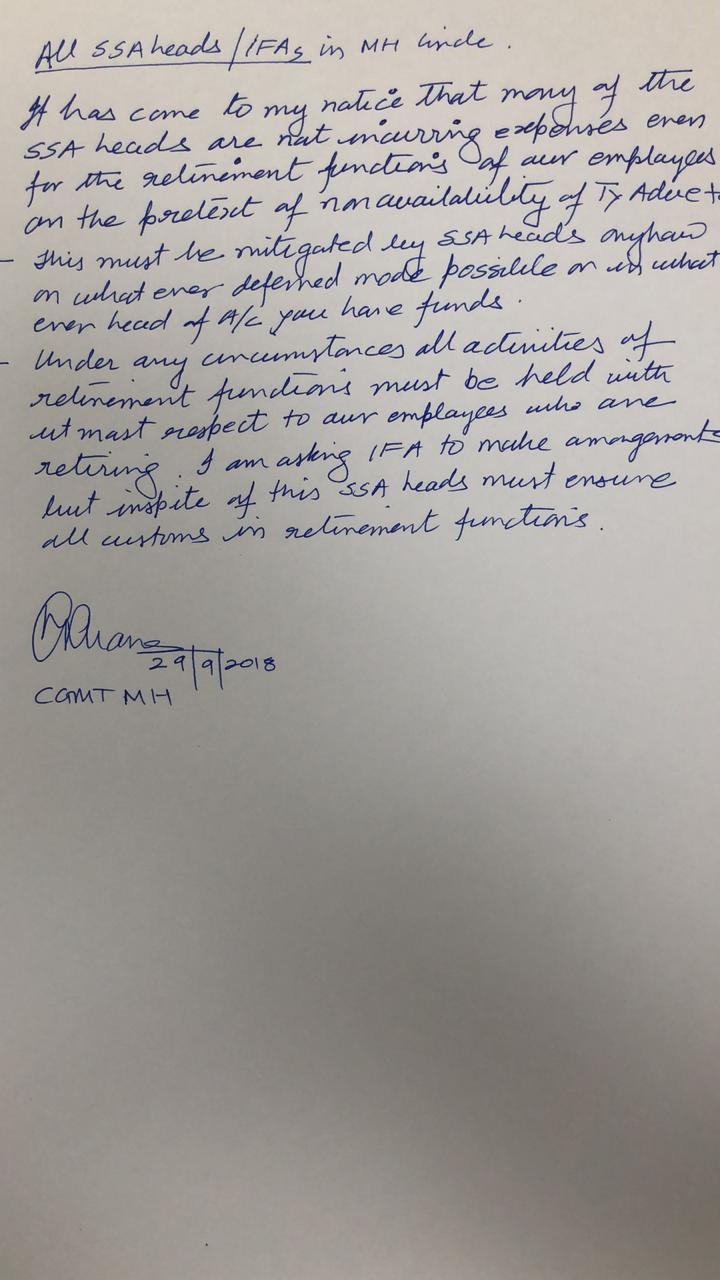 All SSA heads / IFAs in MH Circle.
It has come to my notice that many of the
SSA heads are not incurring expenses even
for the retirement functions of our employees
on the pretext of non availability of Ty
- This must be mitigated by SSA heads anyhow
on what ever deferred mode possible or in what
ever head of A/c you have funds.
- Under any circumstances all activities of
retirement functions must be held with
utmost respect to our employees who are
retiring. I am asking IFA to make arrangements
but inspite of this SSA heads must ensure
all customs in retirement functions.
29/9/2018
CGMT MH